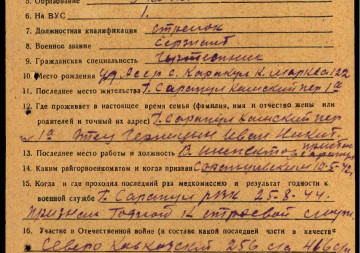 5. Образование
6. На ВУС 1.
7. Должностная квалификация стрелок
8. Военное звание Сержант
9. Гражданская специальность
10. Место рождения Уд. Асср с. Каракул К. Маркса 122
11. Последнее место жительства г. Сарапул Камский пер 1а
12. Где проживает в настоящее время семья (фамилия, имя и отчество жены или
родителей и точный их адрес) г. Сарапул Камский пер
№ 1а Отец Иван Никит.
13. Последнее место работы и должность
14. Каким райгорвоенкоматом и когда призван Сарапульским 10-5-42 г.
15. Когда и где проходил последний раз медкомиссию и результат годности к
военной службе г. Сарапул РВК 25-8-44.
признан годной к строевой службе
16. Участие в Отечественной войне (в составе какой последней части в качестве
Северо Кавказский 256 сд 466 сп